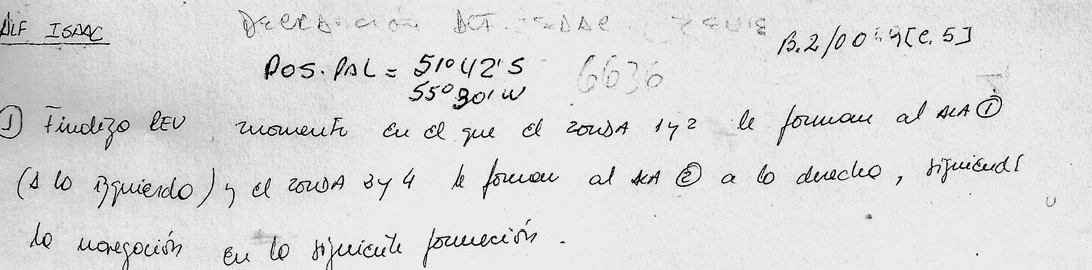 ALF ISAAC
DECLARACIÓN ALF. ISAAC
B.2/00 4 [C.5]
POS. PAL = 51° 42' S
6636
55° 30' W
① Findizo REV momento en el que el ZONDA 1 y 2 le forman al AEA ①
(A la izquierda) y el ZONDA 3 y 4 le forman al AEA ② a la derecha, siguiendo
la navegación en la siguiente formación.